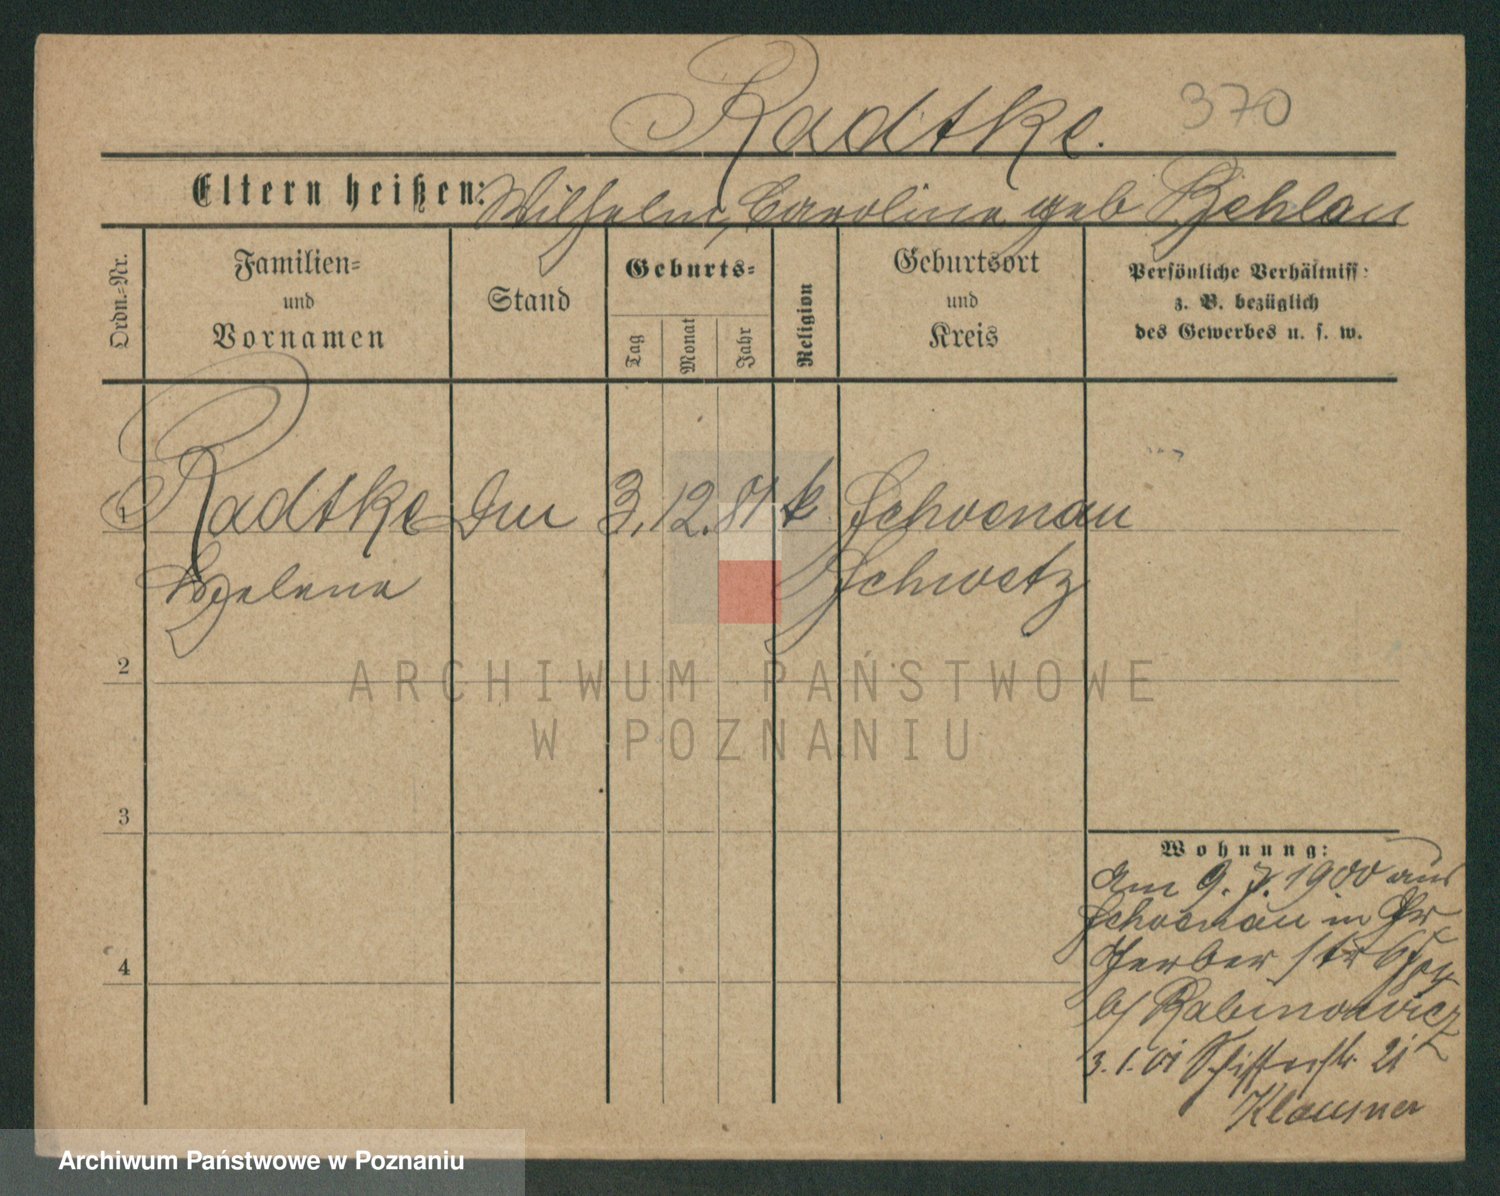 Radtke. 370
Eltern heißen: Wilhelm, Caroline geb Behlau
Ordn.-Nr.
Familien-
und
Vornamen
Stand
Geburts-
Tag
Monat
Jahr
Religion
Geburtsort
und
Kreis
Persönliche Verhältniss:
z. B. bezüglich
des Gewerbes u. s. w.
1 Radtke 3. 12. 81 k Schoenau
Helene Schwetz
2
3
4
ARCHIWUM PAŃSTWOWE
W POZNANIU
Wohnung:
Am 9. 7. 1900 aus
Schoenau in Gr
Gerber str
b/ Rabinowicz
3. 1. 01 Schifferstr. 21
Klausner
Archiwum Państwowe w Poznaniu